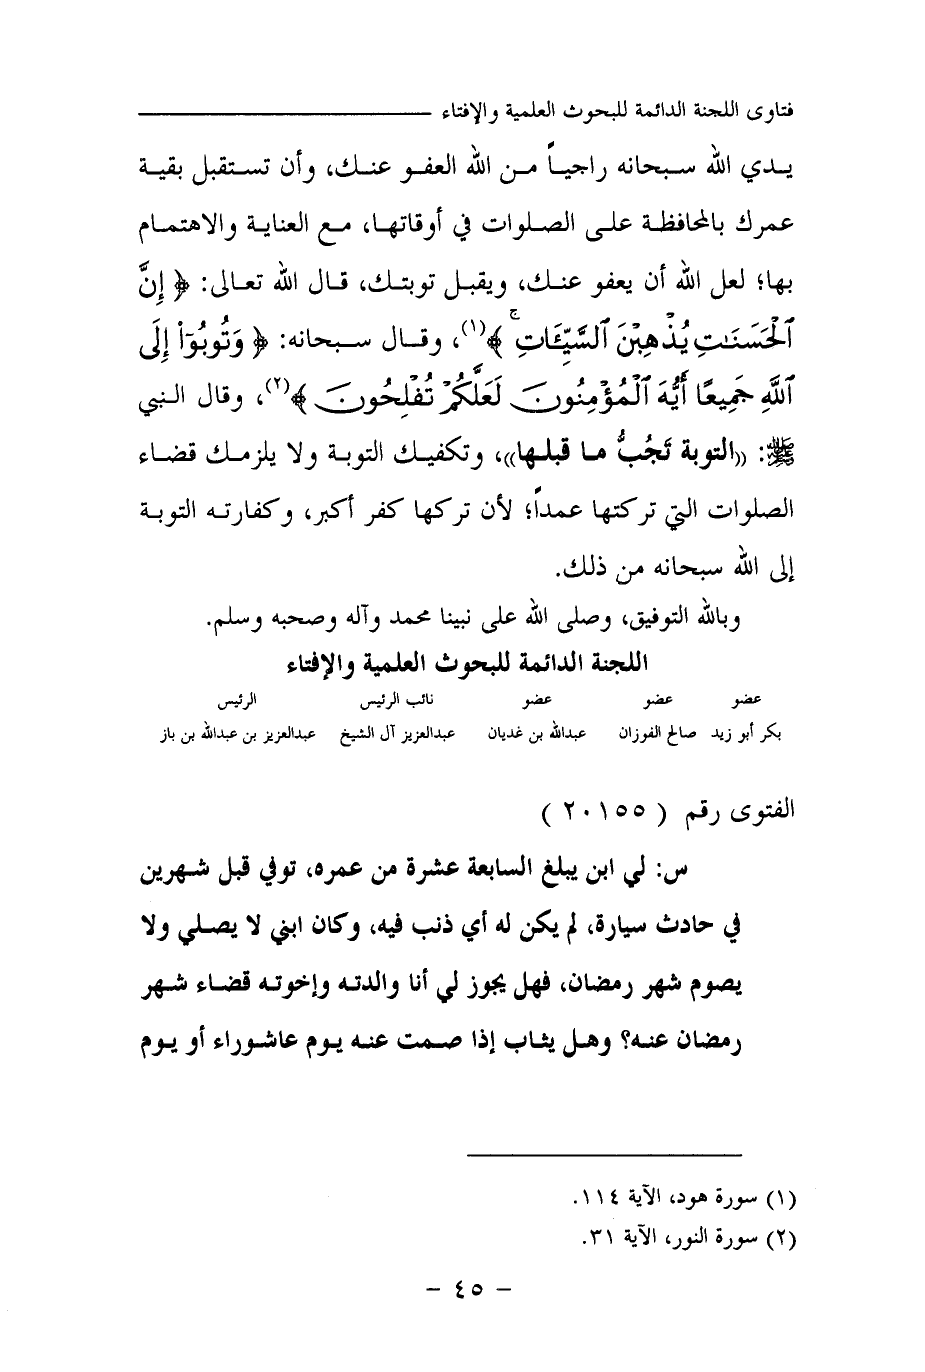 فتاوى اللجنة الدائمة للبحوث العلمية والإفتاء
يـدي الله سـبحانه راجيـاً مـن الله العفـو عنـك، وأن تسـتقبل بقية
عمرك بالمحافظـة علـى الصـلوات في أوقاتهـا، مـع العناية والاهتمـام
بها؛ لعل الله أن يعفو عنـك، ويقبـل توبتـك، قـال الله تعـالى: ﴿ إِنَّ
ٱلْحَسَنَٰتِ يُذْهِبْنَ ٱلسَّيِّـَٔاتِ ۚ ﴾(١)، وقـال سـبحانه: ﴿ وَتُوبُوٓا۟ إِلَى
ٱللَّهِ جَمِيعًا أَيُّهَ ٱلْمُؤْمِنُونَ لَعَلَّكُمْ تُفْلِحُونَ ﴾(٢)، وقال النبي
ﷺ: ((التوبة تَجُبُّ ما قبلـها))، وتكفيـك التوبـة ولا يلزمـك قضـاء
الصلوات التي تركتها عمداً؛ لأن تركها كفر أكبر، وكفارتـه التوبـة
إلى الله سبحانه من ذلك.
وبالله التوفيق، وصلى الله على نبينا محمد وآله وصحبه وسلم.
اللجنة الدائمة للبحوث العلمية والإفتاء
عضو عضو عضو نائب الرئيس الرئيس
بكر أبو زيد صالح الفوزان عبدالله بن غديان عبدالعزيز آل الشيخ عبدالعزيز بن عبدالله بن باز
الفتوى رقم ( ٢٠١٥٥ )
س: لي ابن يبلغ السابعة عشرة من عمره، توفي قبل شـهرين
في حادث سيارة، لم يكن له أي ذنب فيه، وكان ابني لا يصـلي ولا
يصوم شهر رمضان، فهل يجوز لي أنا والدتـه وإخوتـه قضـاء شـهر
رمضان عنه؟ وهـل يثـاب إذا صـمت عنـه يـوم عاشـوراء أو يـوم
(١) سورة هود، الآية ١١٤.
(٢) سورة النور، الآية ٣١.
- ٤٥ -